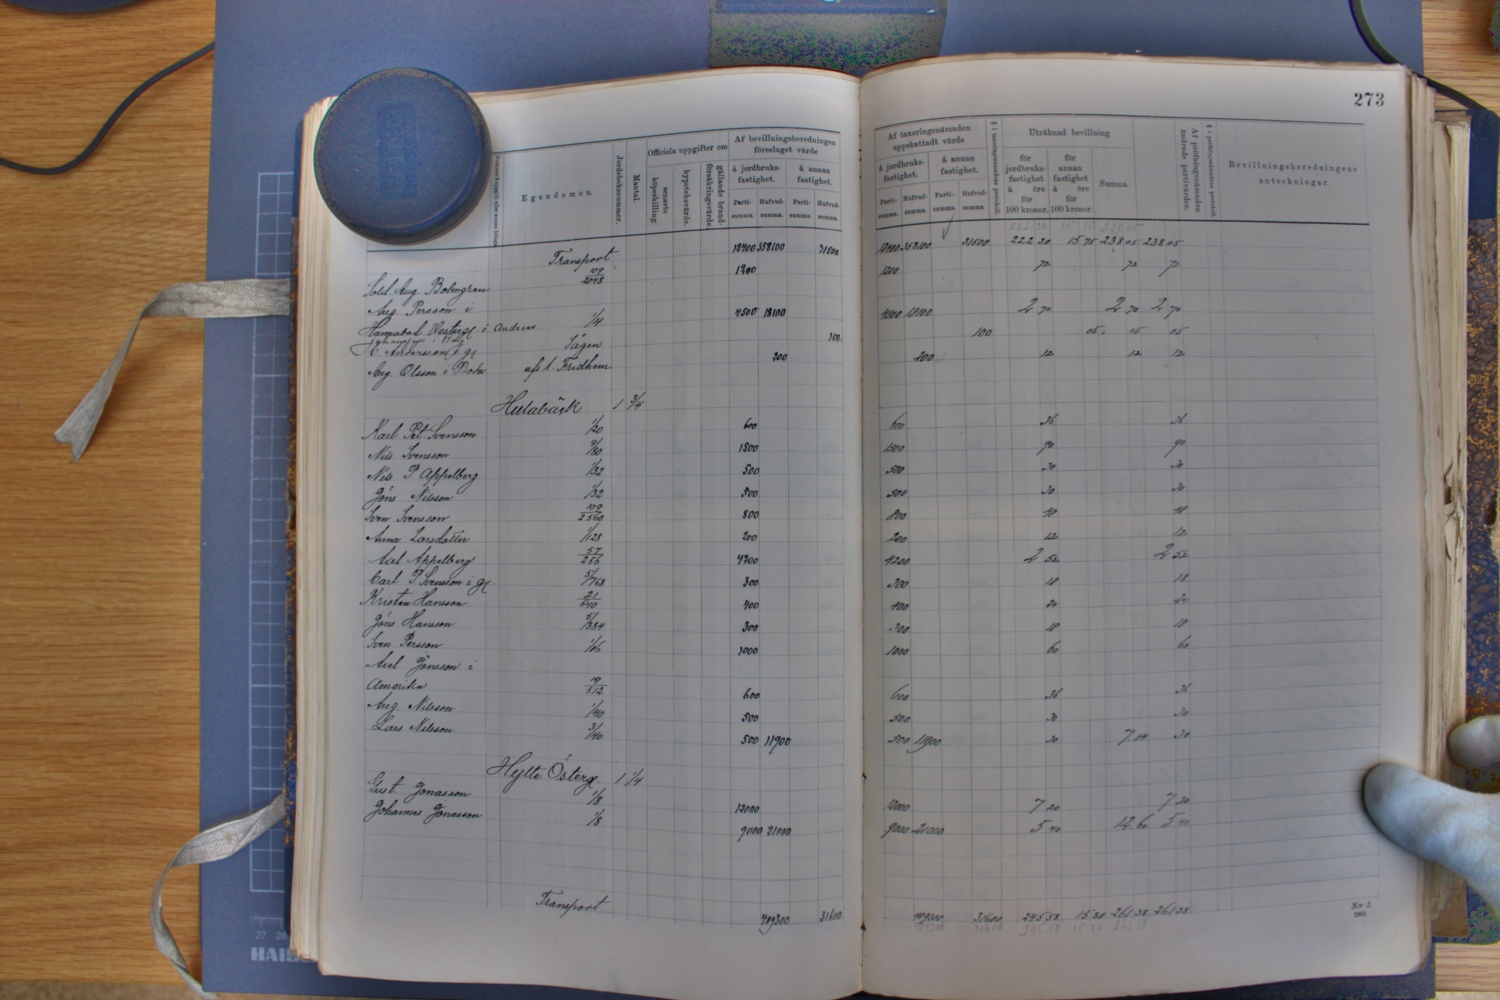 273
Egendomen.
Jordeboksnummer.
Mantal.
Officiela uppgifter om
senaste köpeskilling.
hypoteksvärde.
gällande brandförsäkringsvärde.
Af bevillningsberedningen föreslaget värde
å jordbruksfastighet.
å annan fastighet.
Parti-summa. Hufvud-summa. Parti-summa. Hufvud-summa.
Af taxeringsnämnden uppskattadt värde
å jordbruks-fastighet.
å annan fastighet.
Parti-summa. Hufvud-summa. Parti-summa. Hufvud-summa.
Uträknad bevillning
för jordbruks-fastighet å öre för 100 kronor.
för annan fastighet å öre för 100 kronor.
Summa.
Af pröfningsnämnden ändrade partivärden.
Bevillningsberedningens anteckningar.
Transport 31500 31500 222 30 15 75 238 05 238 05
Sold. Aug. Bolmgren 109/2048 1200 1200 72 72 72
Aug. Persson i
1/4 4500 18100 4500 18100 2 70 2 70 2 70
Andreas
Sågen 100 100 05 05 05
Andersson i gl
Aug. Olsson i Boda afs. l. Fridhem 200 200 12 12 12
Hulabäck 1 3/4
Karl Pet. Svensson 1/20 600 600 36 36
Nils Svensson 9/80 1500 1500 90 90
Nils P Appelberg 1/32 500 500 30 30
Jöns Nilsson 1/32 500 500 30 30
Sven Svensson 109/2560 800 800 48 48
Anna Larsdotter 1/128 200 200 12 12
Axel Appelberg 57/256 4200 4200 2 52 2 52
Carl P Svensson i gl 5/768 300 300 18 18
Kristen Hansson 21/640 400 400 24 24
Jöns Hansson 5/384 300 300 18 18
Sven Persson 1/16 1000 1000 60 60
Axel Jönsson i
Amerika 19/512 600 600 36 36
Aug. Nilsson 1/40 500 500 30 30
Lars Nilsson 3/40 500 11900 500 11900 30 7.14 30
Hylte Österg. 1 1/4
Gust. Jonasson 1/8 12000 12000 7 20 7 20
Johannes Jonasson 1/8 9000 21000 9000 21000 5 40 12.60 5 40
Transport 409300 31600 409300 31600 245 58 15 80 261 38 261 38